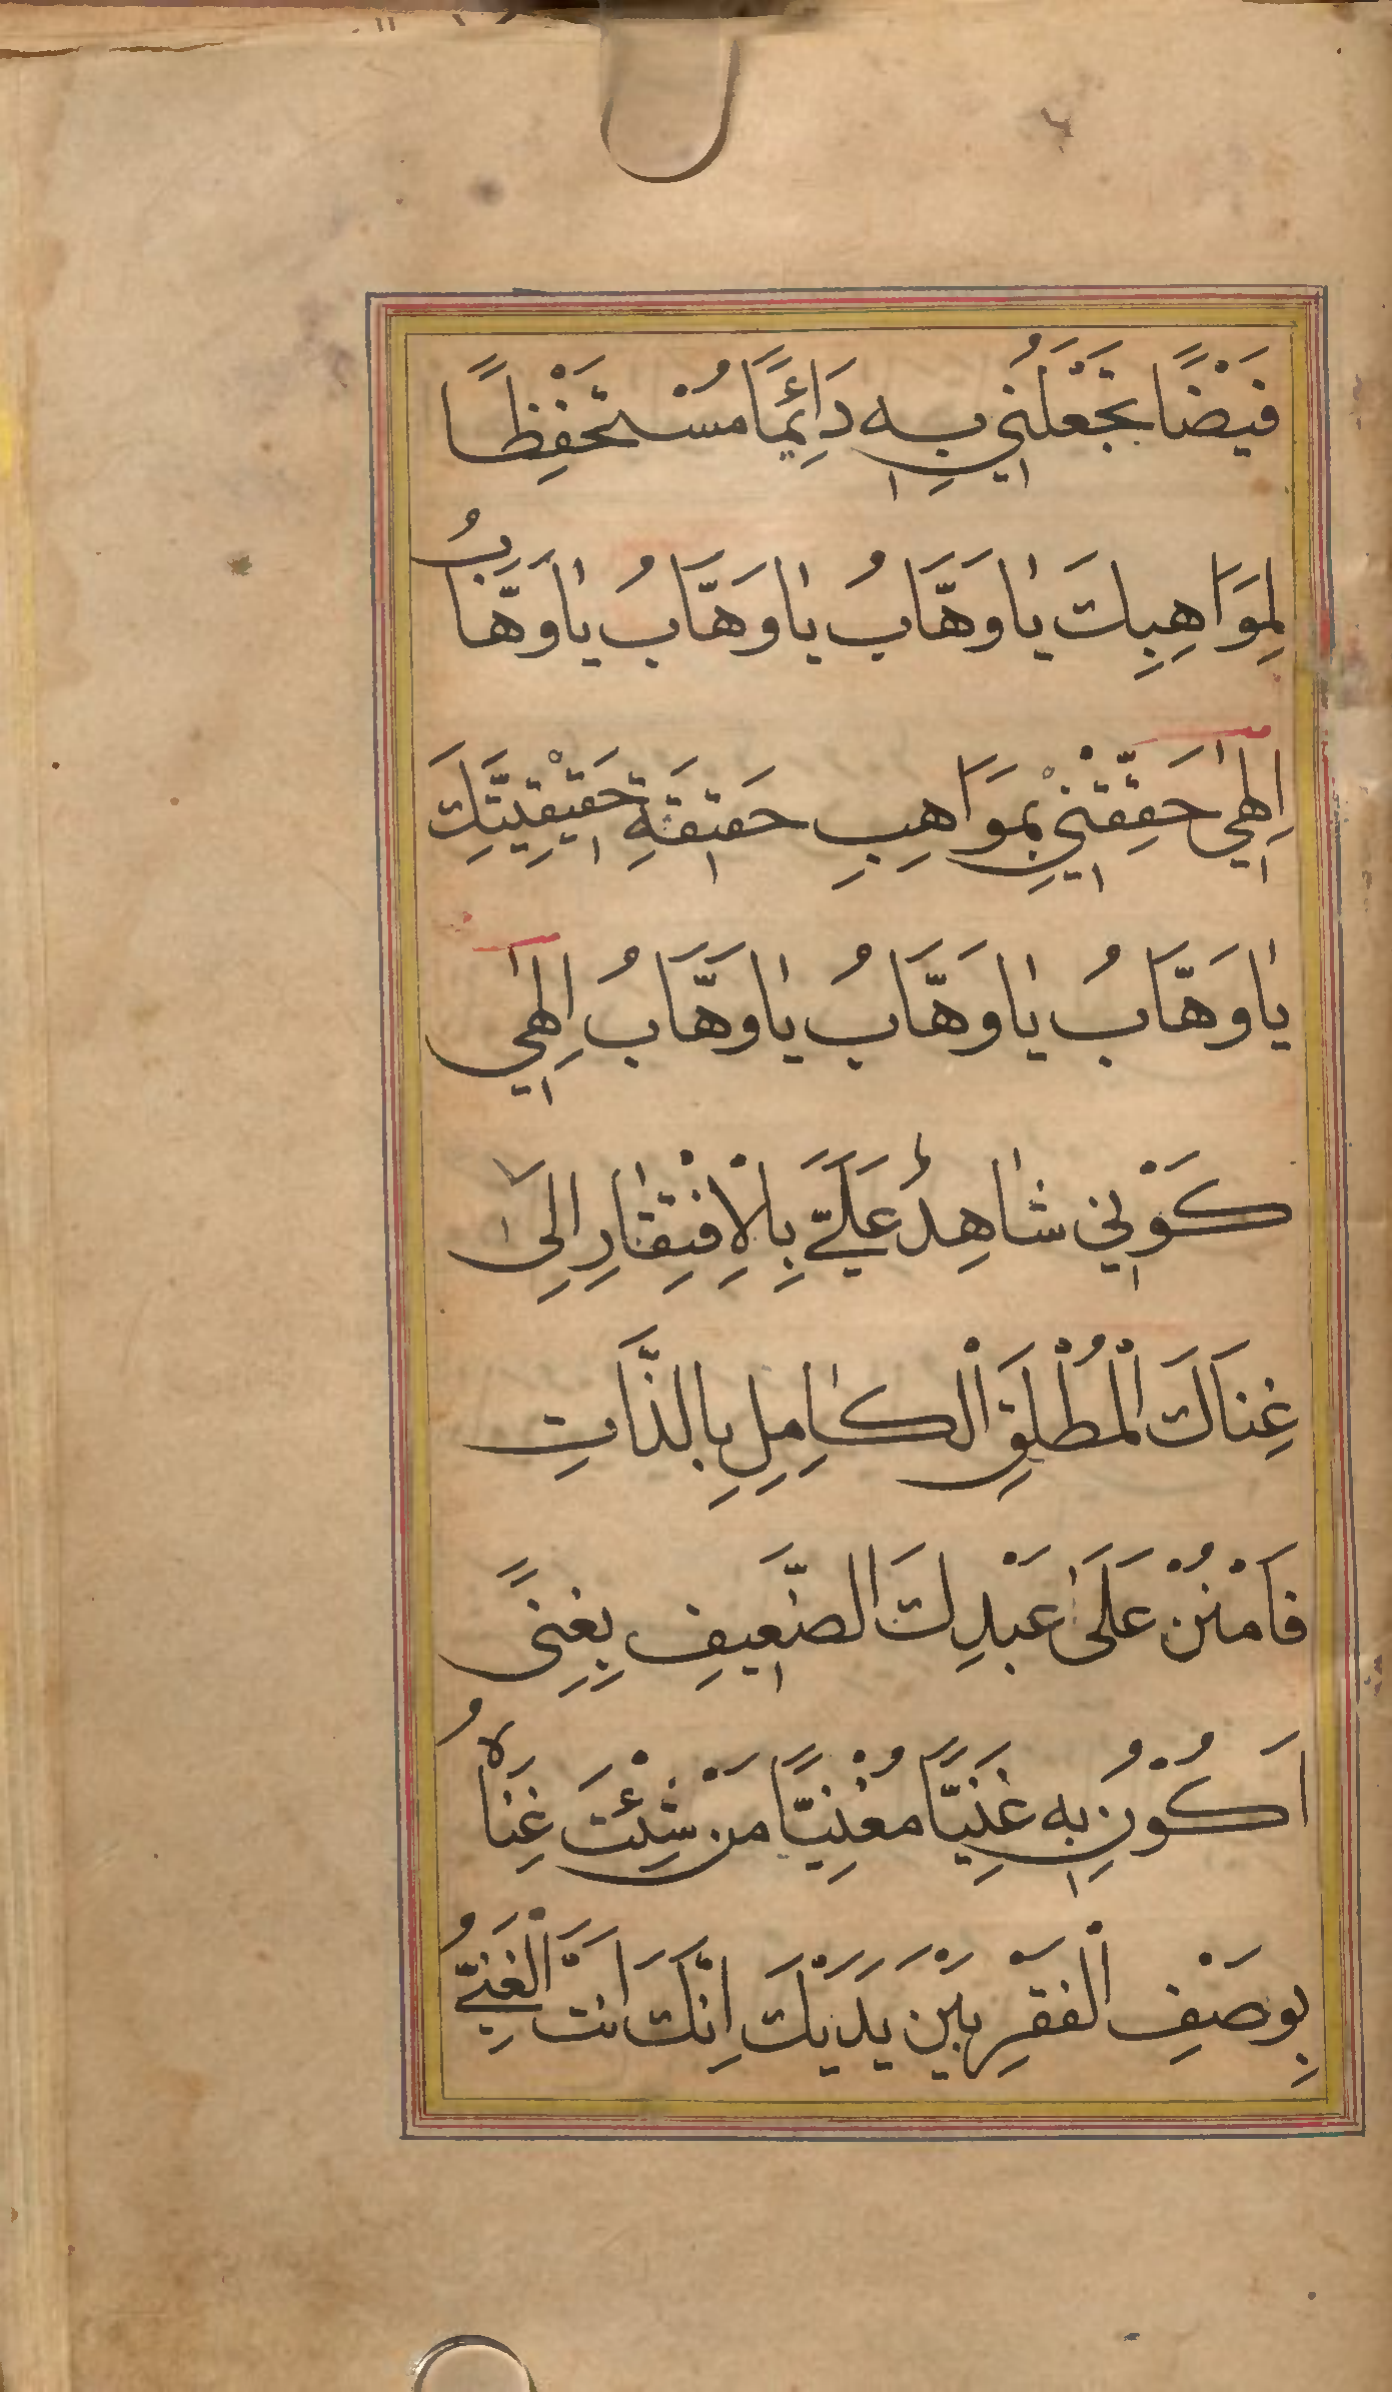 فَيْضًا تَجْعَلُنِي بِهِ دَائِمًا مُسْتَحْفِظًا
لِمَوَاهِبِكَ يَا وَهَّابُ يَا وَهَّابُ يَا وَهَّابُ
اِلٰهِي حَقِّقْنِي بِمَوَاهِبِ حَقِيقَةِ حَقِيْقِيَّتِكَ
يَا وَهَّابُ يَا وَهَّابُ يَا وَهَّابُ اِلٰهِي
كَوْنِي شَاهِدٌ عَلَيَّ بِالْاِفْتِقَارِ اِلَى
غِنَاكَ الْمُطْلَقِ الْكَامِلِ بِالذَّاتِ
فَامْنُنْ عَلَى عَبْدِكَ الضَّعِيفِ بِغِنًى
اَكُوْنُ بِهِ غَنِيًّا مُغْنِيًّا مَنْ شِئْتَ غِنَاهُ
بِوَصْفِ الْفَقْرِ بَيْنَ يَدَيْكَ اِنَّكَ اَنْتَ الْغَنِيُّ